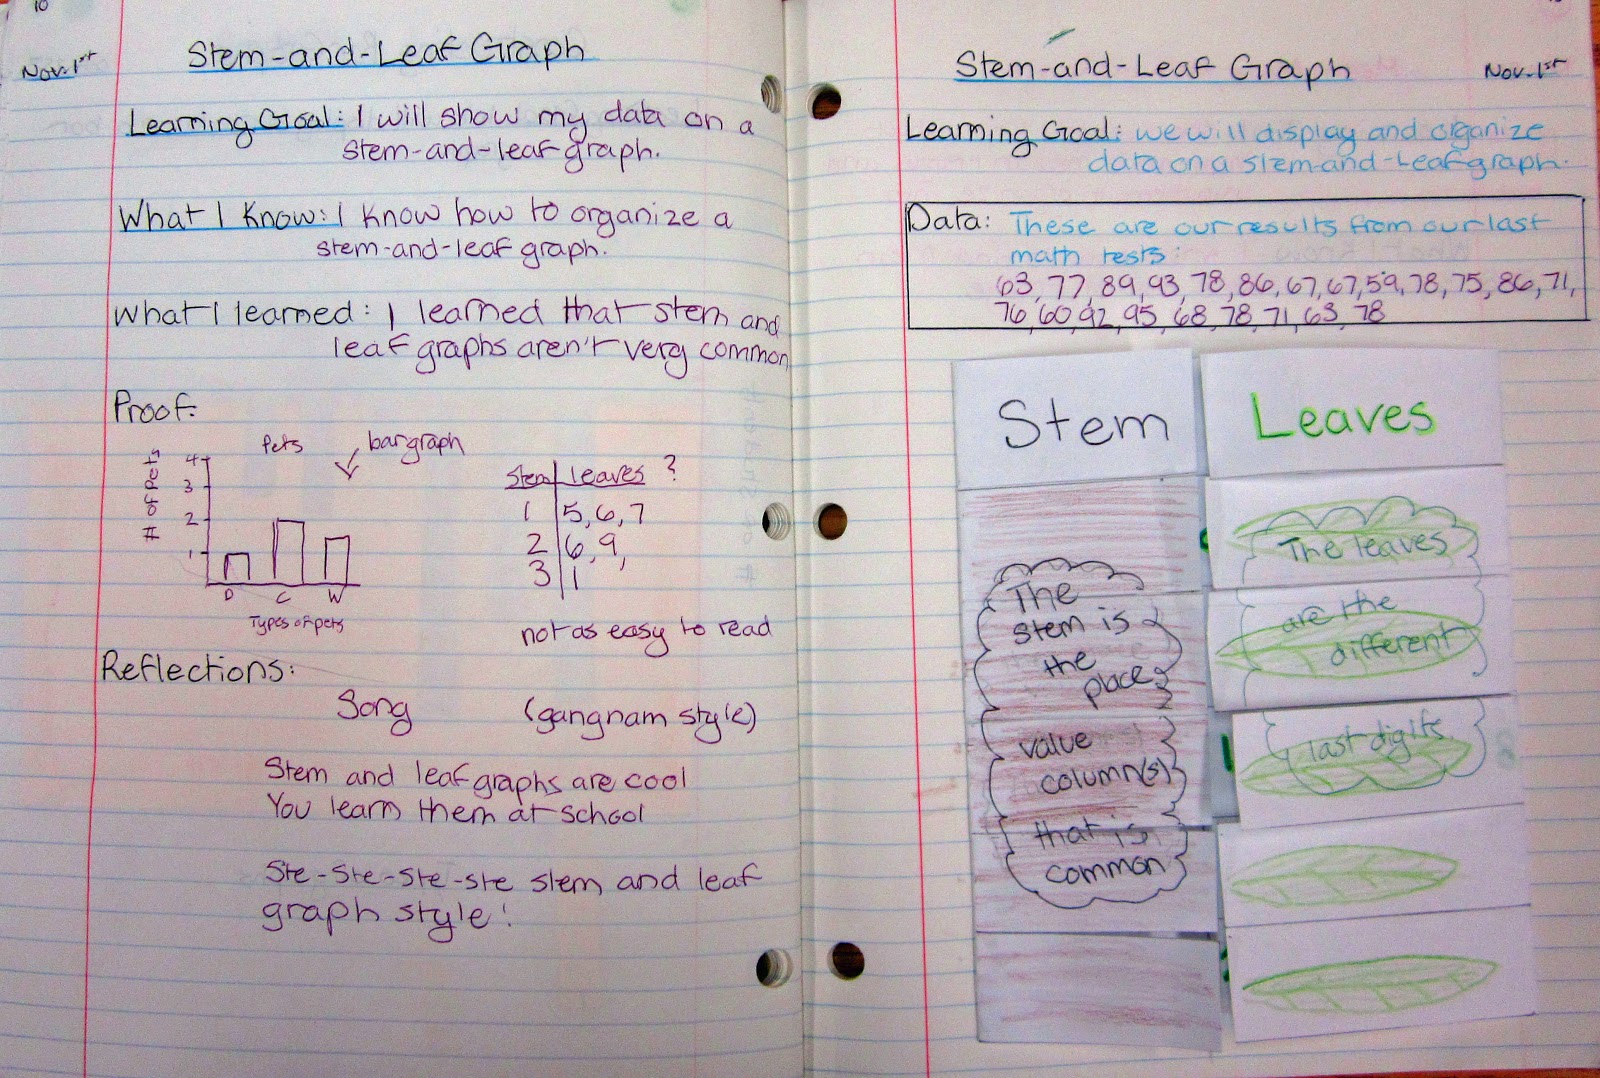 10
Nov. 1st
Stem-and-Leaf Graph
Learning Goal: I will show my data on a
stem-and-leaf graph.
What I Know: I know how to organize a
stem-and-leaf graph.
What I learned: I learned that stem and
leaf graphs aren't very common
Proof:
Pets
bargraph
# of pets
4
3
2
1
D C W
Types of pets
Stem leaves ?
1 5, 6, 7
2 6, 9,
3 1
not as easy to read
Reflections:
Song (gangnam style)
Stem and leaf graphs are cool
You learn them at school
Ste-Ste-Ste-ste stem and leaf
graph style!
Stem-and-Leaf Graph
Nov. 1st
Learning Goal: we will display and organize
data on a stem-and-Leaf graph.
Data: These are our results from our last
math tests:
63, 77, 89, 93, 78, 86, 67, 67, 59, 78, 75, 86, 71,
76, 60, 92, 95, 68, 78, 71, 63, 78
Stem
The
stem is
the
place
value
column(s)
that is
common
Leaves
The leaves
are the
different
last digits.